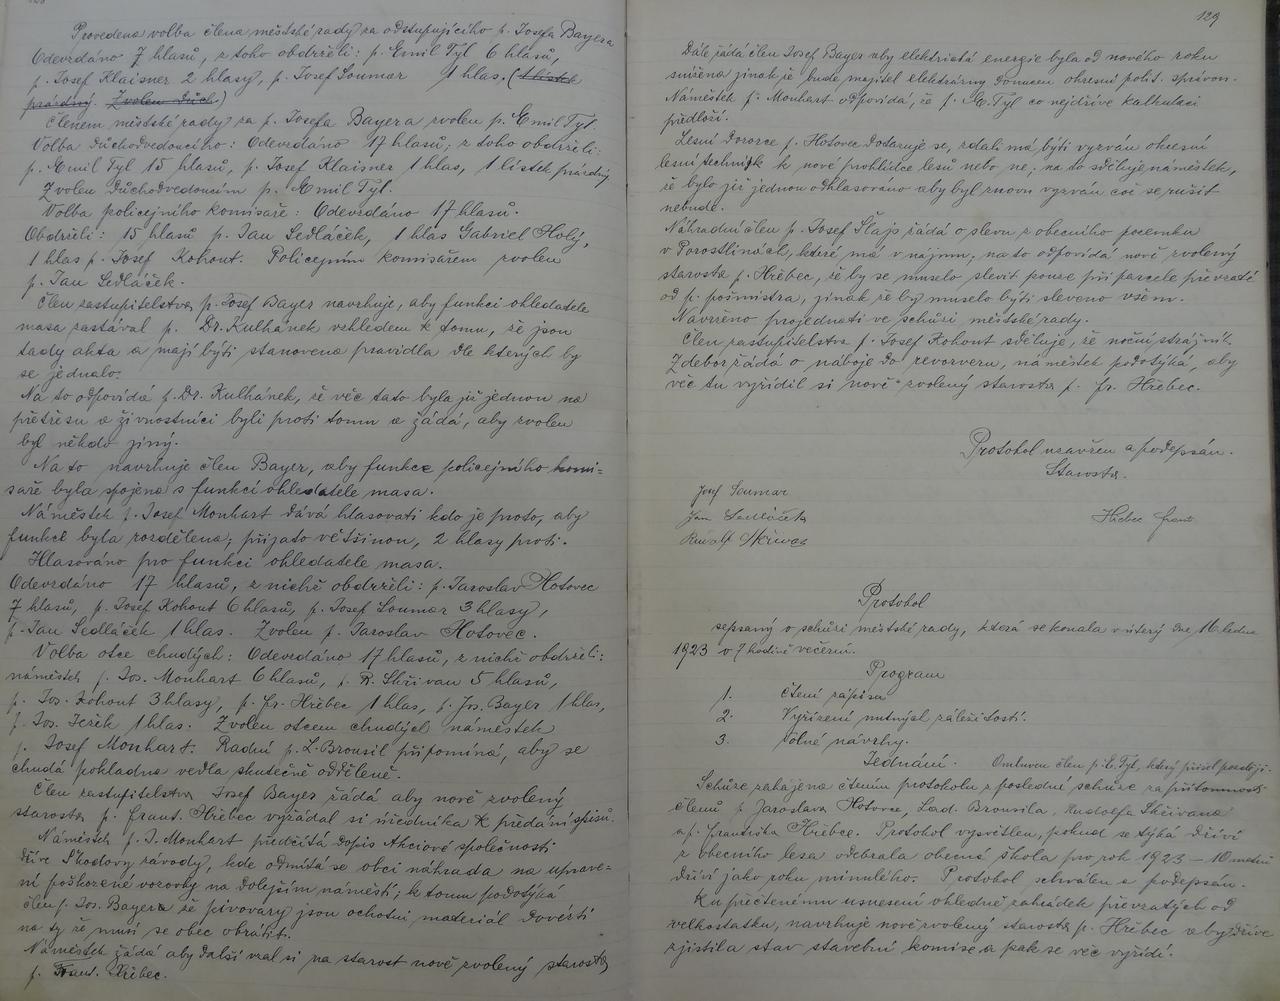 Provedena volba člena městské rady za odstupujícího p. Josefa Bayera
Odevzdáno 7 hlasů, z toho obdrželi: p. Emil Tyl 6 hlasů,
p. Josef Klaisner 2 hlasy, p. Josef Soumar 1 hlas. (1 lístek
prázdný. Zvolen Důch.)
Členem městské rady za p. Josefa Bayera zvolen p. Emil Tyl.
Volba důchodvedoucího: Odevzdáno 17 hlasů; z toho obdrželi:
p. Emil Tyl 15 hlasů, p. Josef Klaisner 1 hlas, 1 lístek prázdný
Zvolen důchodvedoucím p. Emil Tyl.
Volba policejního komisaře: Odevzdáno 17 hlasů.
Obdrželi: 15 hlasů p. Jan Sedláček, 1 hlas Gabriel Holý,
1 hlas p. Josef Kohout. Policejním komisařem zvolen
p. Jan Sedláček.
Člen zastupitelstva p. Josef Bayer navrhuje, aby funkci ohledatele
masa zastával p. Dr. Kulhánek vzhledem k tomu, že jsou
tady akta a mají býti stanovena pravidla dle kterých by
se jednalo.
Na to odpovídá p. Dr. Kulhánek, že věc tato byla již jednou na
přetřesu a živnostníci byli proti tomu a žádá, aby zvolen
byl někdo jiný.
Na to navrhuje člen Bayer, aby funkce policejního komi=
saře byla spojena s funkcí ohledatele masa.
Náměstek p. Josef Monhart dává hlasovati kdo je proto, aby
funkce byla rozdělena; přijato většinou, 2 hlasy proti.
Hlasováno pro funkci ohledatele masa.
Odevzdáno 17 hlasů, z nichž obdrželi: p. Jaroslav Hotovec
7 hlasů, p. Josef Kohout 6 hlasů, p. Josef Soumar 3 hlasy,
p. Jan Sedláček 1 hlas. Zvolen p. Jaroslav Hotovec.
Volba otce chudých: Odevzdáno 17 hlasů, z nichž obdrželi:
náměstek p. Jos. Monhart 6 hlasů, p. R. Skřivan 5 hlasů,
p. Jos. Kohout 3 hlasy, p. Fr. Hřebec 1 hlas, p. Jos. Bayer 1 hlas,
p. Jos. Ježek 1 hlas. Zvolen otcem chudých náměstek
p. Josef Monhart. Radní p. L. Brousil připomíná, aby se
chudá pokladna vedla skutečně odděleně.
Člen zastupitelstva Josef Bayer žádá aby nově zvolený
starosta p. Frant. Hřebec vyžádal si úředníka k předání spisů.
Náměstek p. J. Monhart předčítá dopis Akciové společnosti
dříve Škodovy závody, kde odmítá se obci náhrada na uprave=
ní poškozené vozovky na dolejším náměstí; k tomu podotýká
člen p. Jos. Bayer že pivovary jsou ochotni materiál dovézti
na ty že musí se obec obrátiti.
Náměstek žádá aby další vzal si na starost nově zvolený starosta
p. Frant. Hřebec.
129
Dále žádá člen Josef Bayer aby elektrická energie byla od nového roku
snížena jinak že bude majitel elektrárny donucen okresní polit. správou.
Náměstek p. Monhart odpovídá, že p. E. Tyl co nejdříve kalkulaci
předloží.
Lesní dozorce p. Hotovec dotazuje se, zdali má býti vyzván okresní
lesní technik k nové prohlídce lesů nebo ne; na to sděluje náměstek,
že bylo již jednou odhlasováno aby byl znovu vyzván což se rušit
nebude.
Náhradní člen p. Josef Šlajs žádá o slevu z obecního pozemku
v Porostlinách, které má v nájmu; na to odpovídá nově zvolený
starosta p. Hřebec, že by se muselo slevit pouze při parcele převzaté
od p. poštmistra, jinak že by muselo býti sleveno všem.
Navrženo projednati ve schůzi městské rady.
Člen zastupitelstva p. Josef Kohout sděluje, že noční strážník
Zdebor žádá o náboje do revolveru, náměstek podotýká, aby
věc tu vyřídil si nově zvolený starosta p. Fr. Hřebec.
Protokol uzavřen a podepsán.
Starosta.
Josef Soumar
Jan Sedláček
Hřebec Frant
Rudolf Skřivan
Protokol
sepsaný o schůzi městské rady, která se konala v úterý dne 16 ledna
1923 v 7 hodině večerní.
Program
1. Čtení zápisu
2. Vyřízení nutných záležitostí.
3. Volné návrhy.
Jednání. Omluven člen p. E. Tyl, který přišel později.
Schůze zahájena čtením protokolu z poslední schůze za přítomnosti
členů p. Jaroslava Hotovce, Lad. Brousila, Rudolfa Skřivana
a p. Františka Hřebce. Protokol vysvětlen, pokud se týká dříví
z obecního lesa odebrala obecná škola pro rok 1923 – 10 metrů
dříví jako roku minulého. Protokol schválen a podepsán.
Ku přečtenému usnesení ohledně zahrádek převzatých od
velkostatku, navrhuje nově zvolený starosta p. Hřebec aby dříve
zjistila stav stavební komise a pak se věc vyřídí.